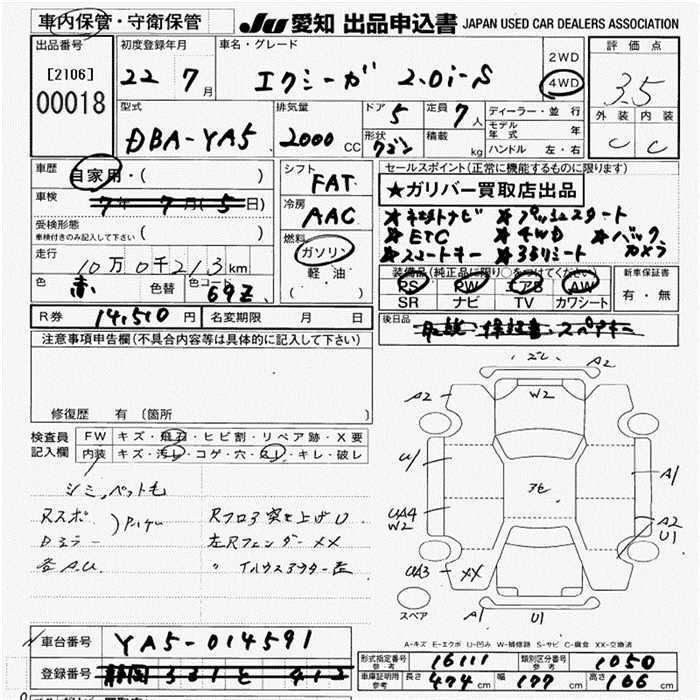 車内保管・守衛保管
JU 愛知 出品申込書 JAPAN USED CAR DEALERS ASSOCIATION
出品番号
[2106]
00018
初度登録年月
22 7月
車名・グレード
エクシーガ 2.0i-S
2WD
4WD
評価点
3.5
外装 内装
C C
型式
DBA-YA5
排気量
2000 CC
ドア
5
形状
ワゴン
定員
7人
積載
kg
ディーラー・並行
モデル年式 年
ハンドル 左・右
車歴
自家用・( )
車検
7年 7月(5日)
受検形態
車検付きのみ記入して下さい ( )
走行
10万0千213km
色
赤
色替
色コード
69Z
シフト
FAT
冷房
AAC
燃料
ガソリン
軽油
( )
セールスポイント(正常に機能するものに限ります)
★ガリバー買取店出品
★社外ナビ ★プッシュスタート
★ETC ★4WD ★バックカメラ
★スマートキー ★3列シート
装備品(純正品に限り○をつけてください)
PS PW エアB AW
SR ナビ TV カワシート
新車保証書
有・無
R券 14,510円
名変期限 月 日
後日品
取説 保証書 スペアキー
注意事項申告欄(不具合内容等は具体的に記入して下さい)
修復歴 有 〔箇所 〕
検査員記入欄
FW キズ・飛石・ヒビ割・リペア跡・X要
内装 キズ・汚れ・コゲ・穴・スレ・キレ・破レ
シミ、ペット毛
Rスポ
Dミラー
各A.U.
Rフロア突き上げU
左Rフェンダー XX
A2
W2
A2
U1
アセ
A1
UA4
W2
A2
U1
UA3
XX
スペア
A1
U1
A-キズ E-エクボ U-凹み W-補修跡 S-サビ C-腐食 XX-交換済
車台番号 YA5-014591
登録番号
形式指定番号 参考 16111
類別区分番号 参考 1050
車庫証明用 参考 長さ 474cm 幅 177cm 高さ 166cm